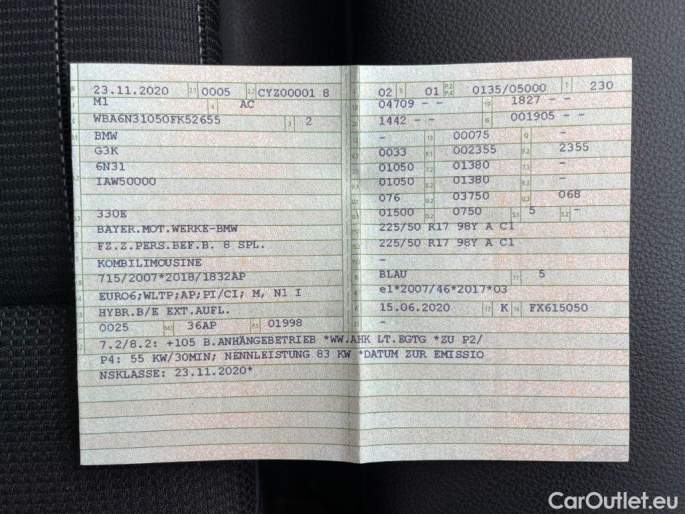 23.11.2020 2.1 0005 2.2 CYZ00001 8
M1 4 AC
WBA6N31050FK52655 3 2
BMW
G3K
6N31
IAW50000
330E
BAYER.MOT.WERKE-BMW
FZ.Z.PERS.BEF.B. 8 SPL.
KOMBILIMOUSINE
715/2007*2018/1832AP
EURO6;WLTP;AP;PI/CI; M, N1 I
HYBR.B/E EXT.AUFL.
0025 36AP 01998
7.2/8.2: +105 B.ANHÄNGEBETRIEB *WW.AHK LT.EGTG *ZU P2/
P4: 55 KW/30MIN; NENNLEISTUNG 83 KW *DATUM ZUR EMISSIO
NSKLASSE: 23.11.2020*
02 01 0135/05000 230
04709 - - 1827 - -
1442 - - 001905 - -
- 00075 -
0033 002355 2355
01050 01380 -
01050 01380 -
076 03750 068
01500 0750 5 -
225/50 R17 98Y A C1
225/50 R17 98Y A C1
-
BLAU 5
e1*2007/46*2017*03
15.06.2020 K FX615050
CarOutlet.eu